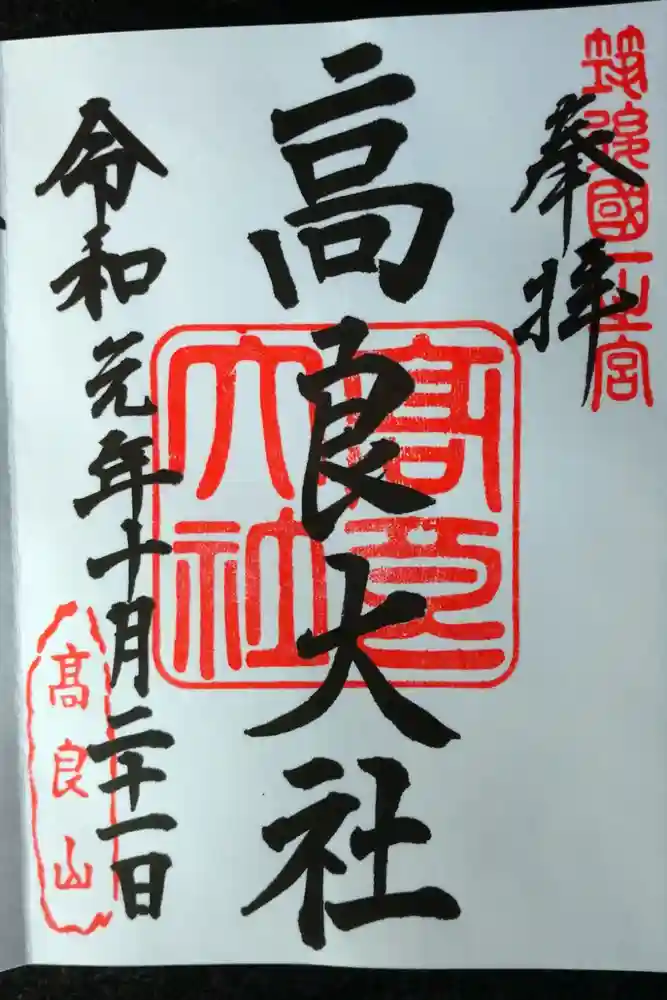 筑後國一之宮
奉拝
高良大社
高良大社
令和元年十月二十一日
髙良山